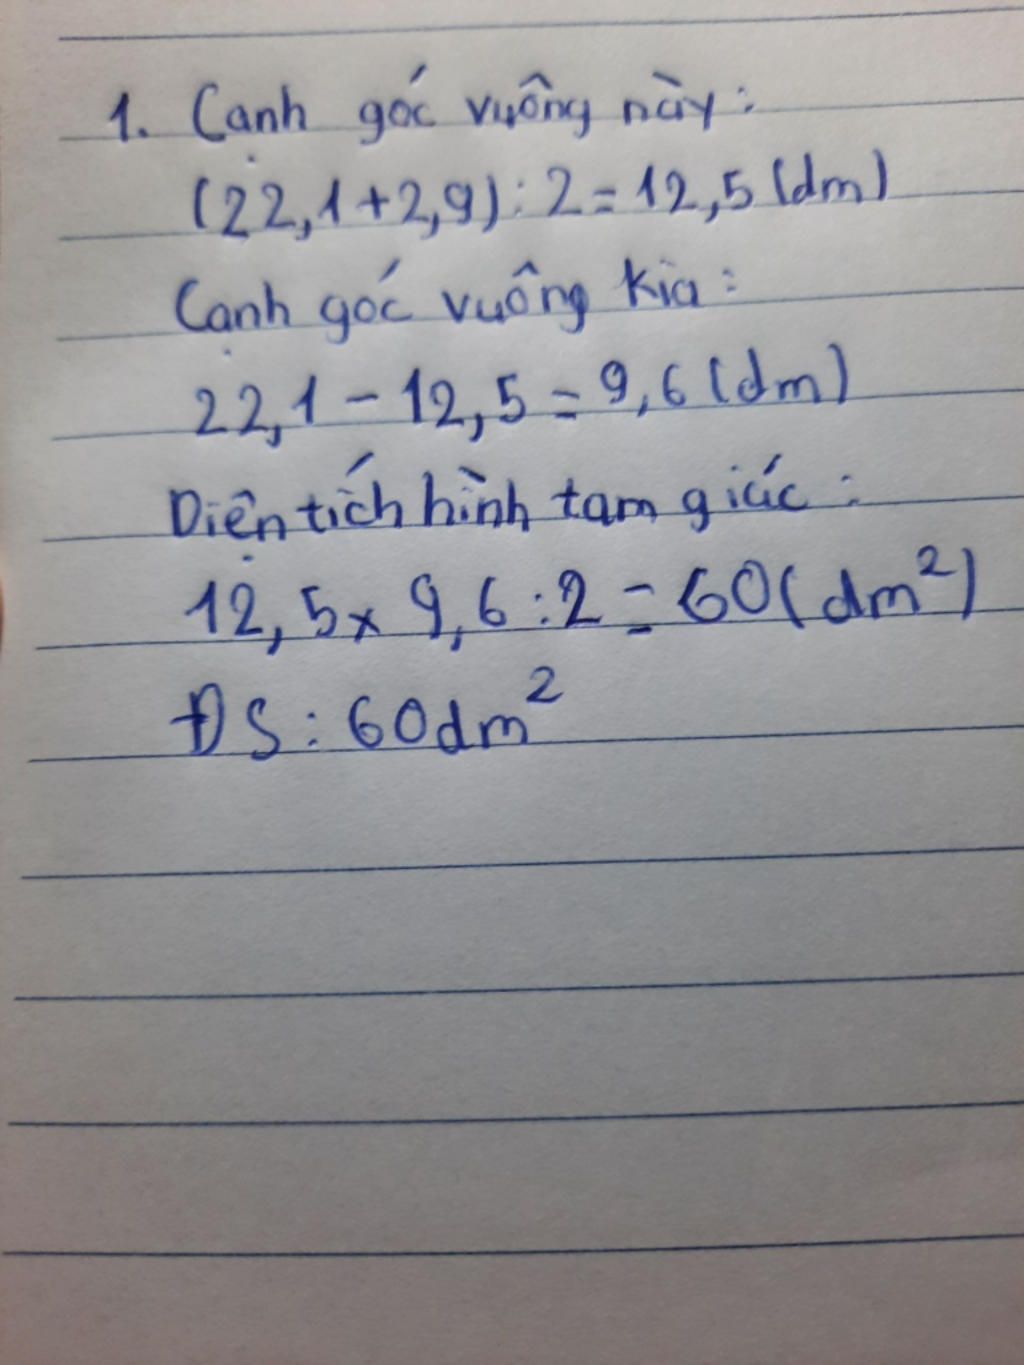 1. Cạnh góc vuông này:
(22,1+2,9):2=12,5(dm)
Cạnh góc vuông kia:
22,1-12,5=9,6(dm)
Diện tích hình tam giác:
12,5x9,6:2=60(dm²)
ĐS:60dm²